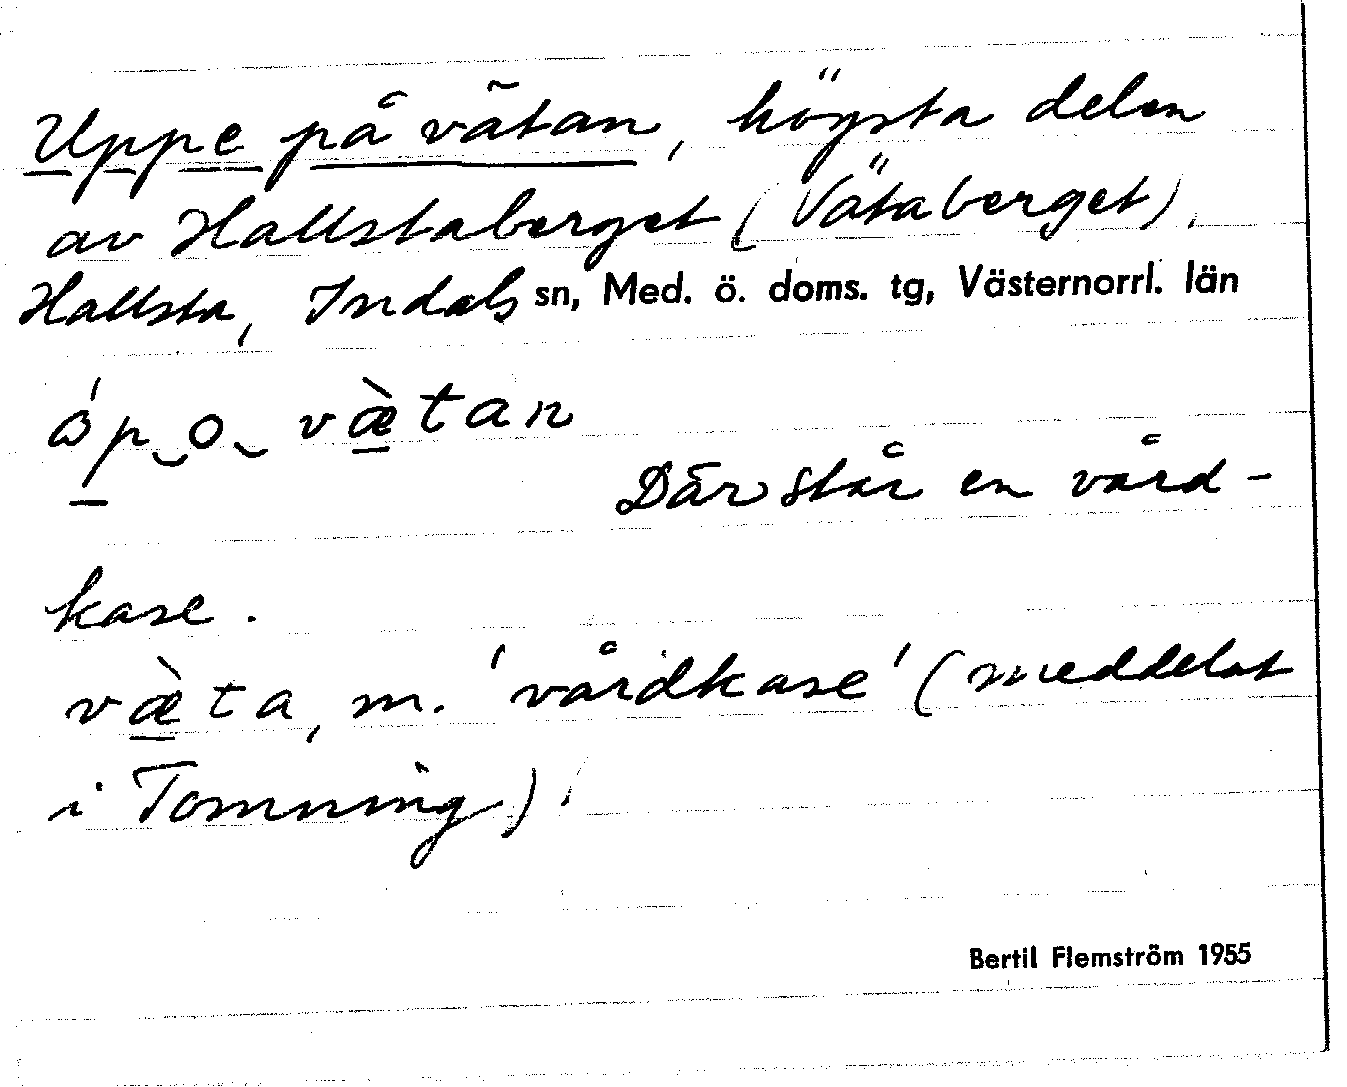 Uppe på vätan, högsta delen
av Hallstaberget (Vätaberget),
Hallsta, Indals sn, Med. ö. doms. tg, Västernorrl. län
ópo væ̀tan
Där står en vård-
kase.
væ̀ta, m. 'vårdkase' (meddelat
i Tomning).
Bertil Flemström 1955